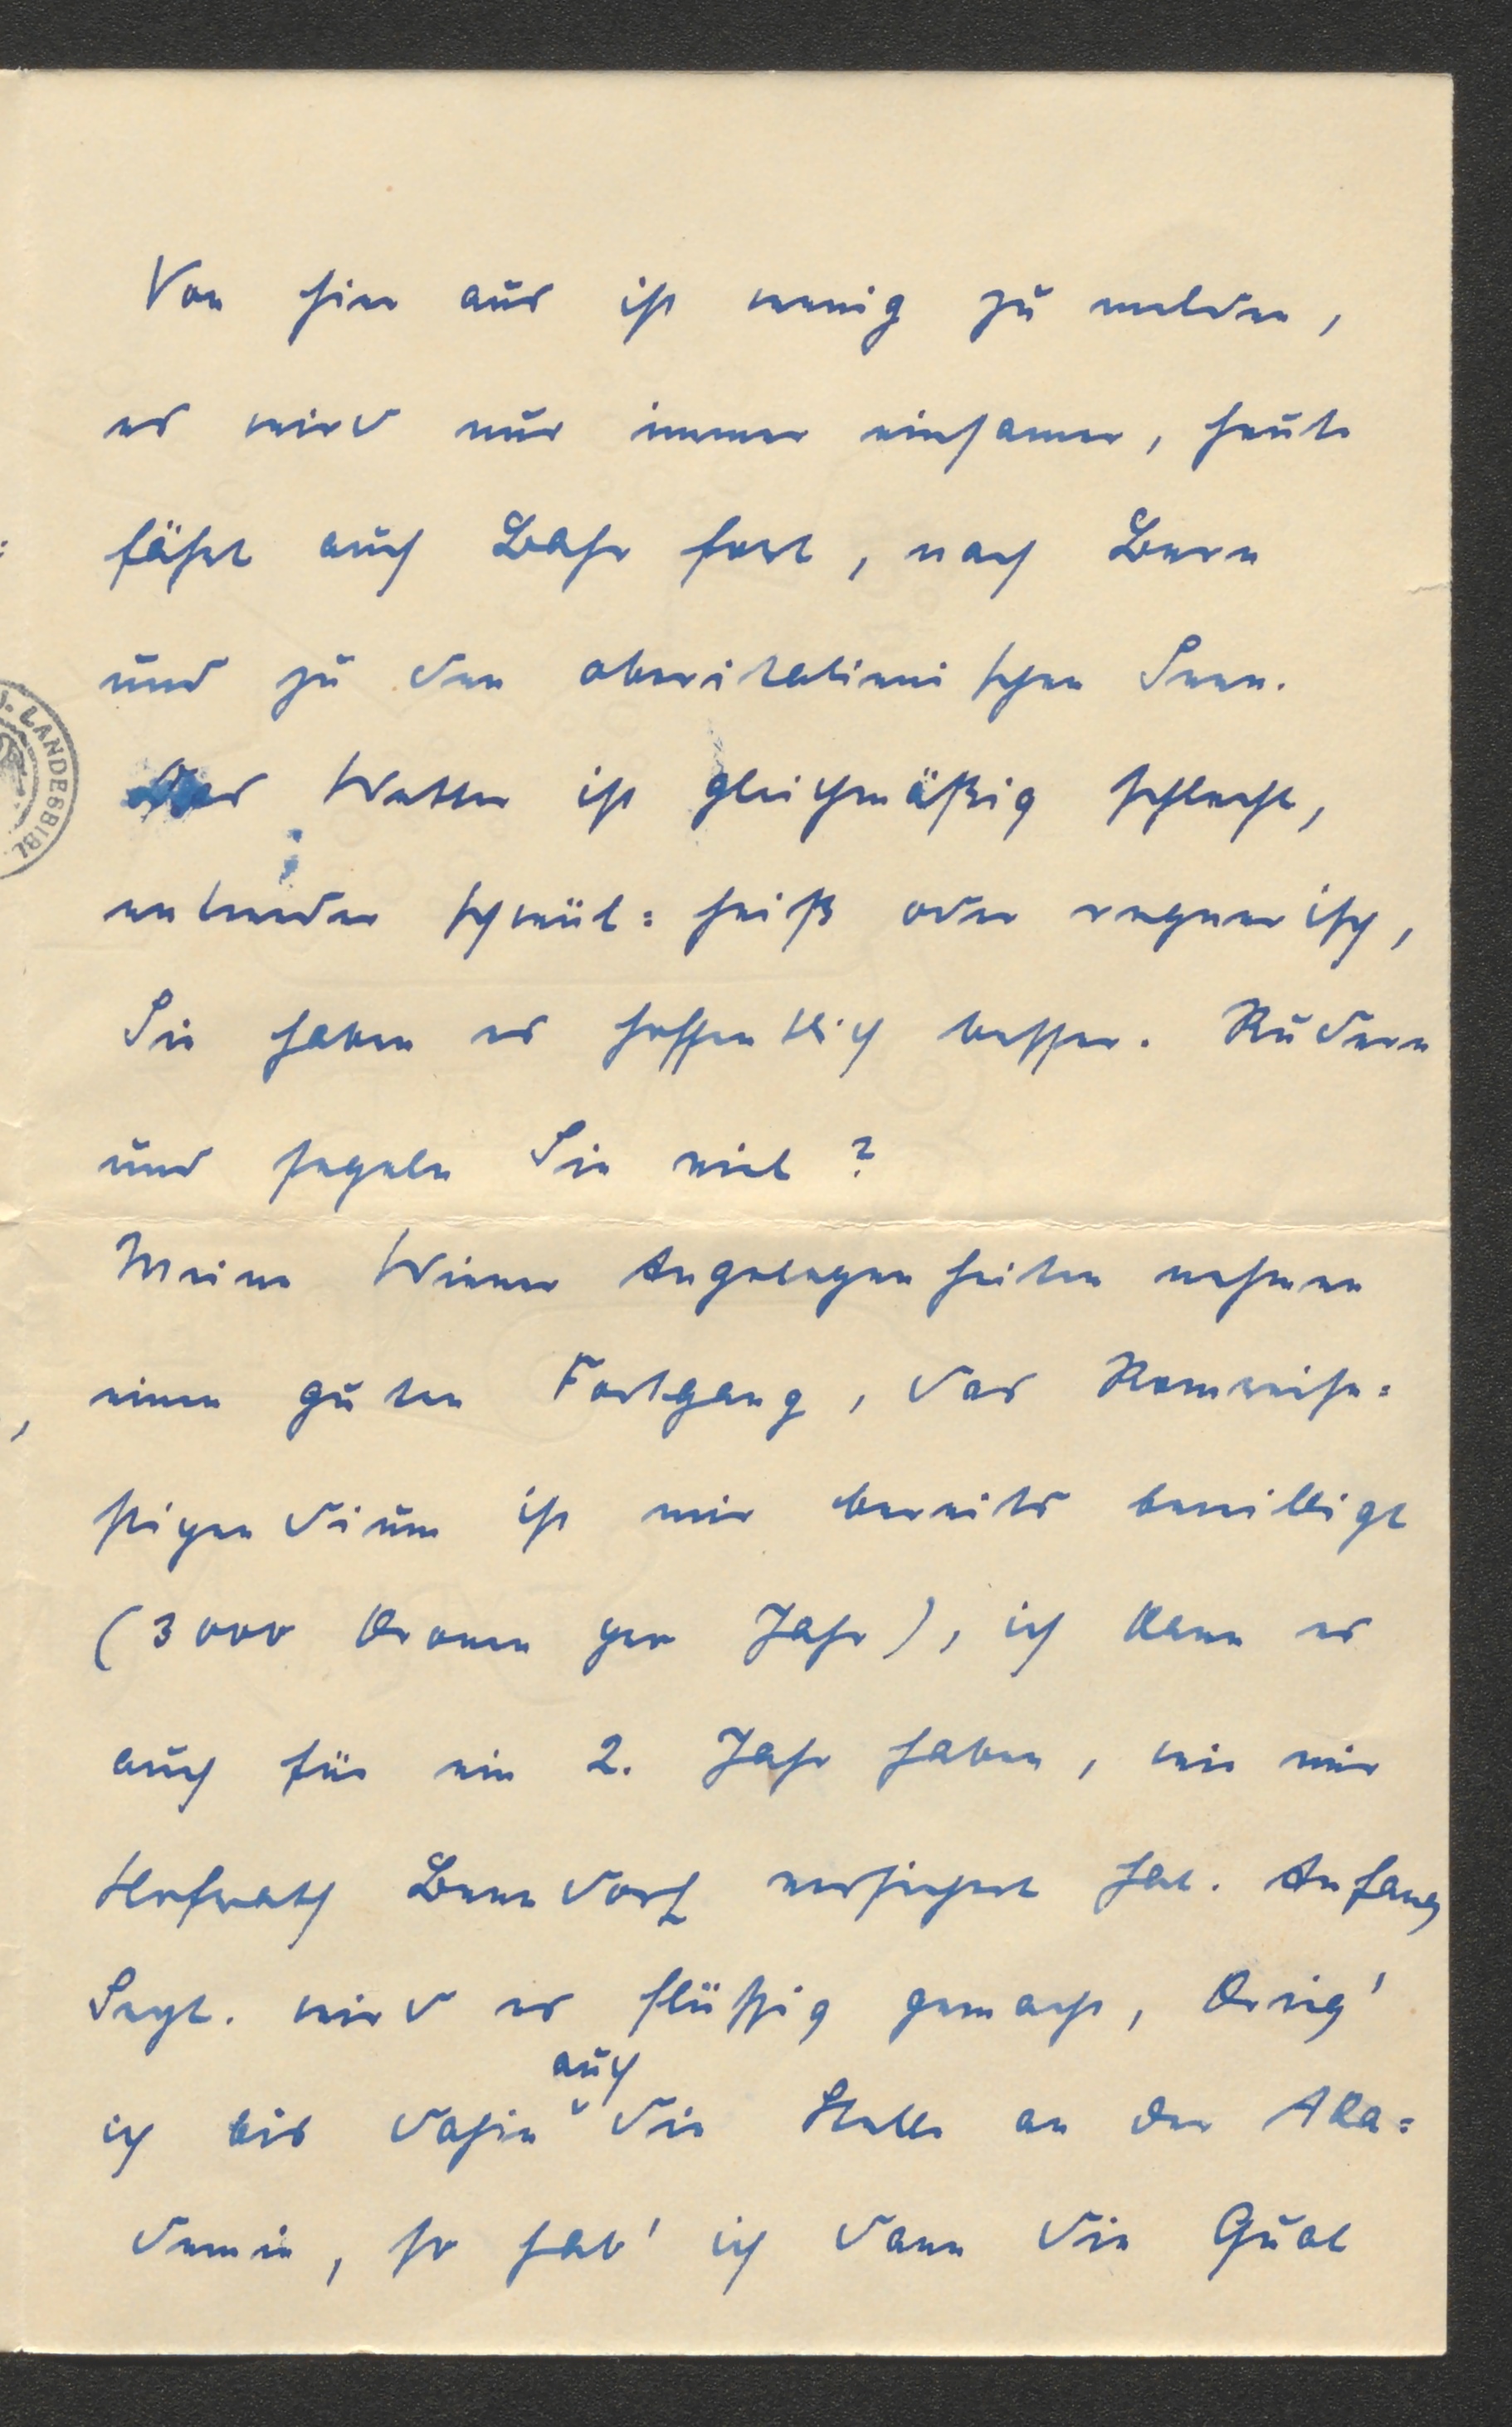 Von hier aus ist wenig zu melden,
es wird nur immer einsamer, heute
fährt auch Bahr fort, nach Bern
und zu den oberitalienischen Seen.
Das Wetter ist gleichmäßig schlecht,
entweder schwül= heiß oder regnerisch,
Sie haben es hoffentlich besser. Rudern
und segeln Sie viel?
Meine Wiener Angelegenheiten nehmen
einen guten Fortgang, das Romreise=
stipendium ist mir bereits bewilligt
(3000 Kronen per Jahr), ich kann es
auch für ein 2. Jahr haben, wie mir
Hofrath Benndorf versichert hat. Anfang
Sept. wird es flüssig gemacht, krieg'
auch
ich bis dahin die Stelle an der Aka=
demie, so hab' ich dann die Qual
LANDESBIBL.